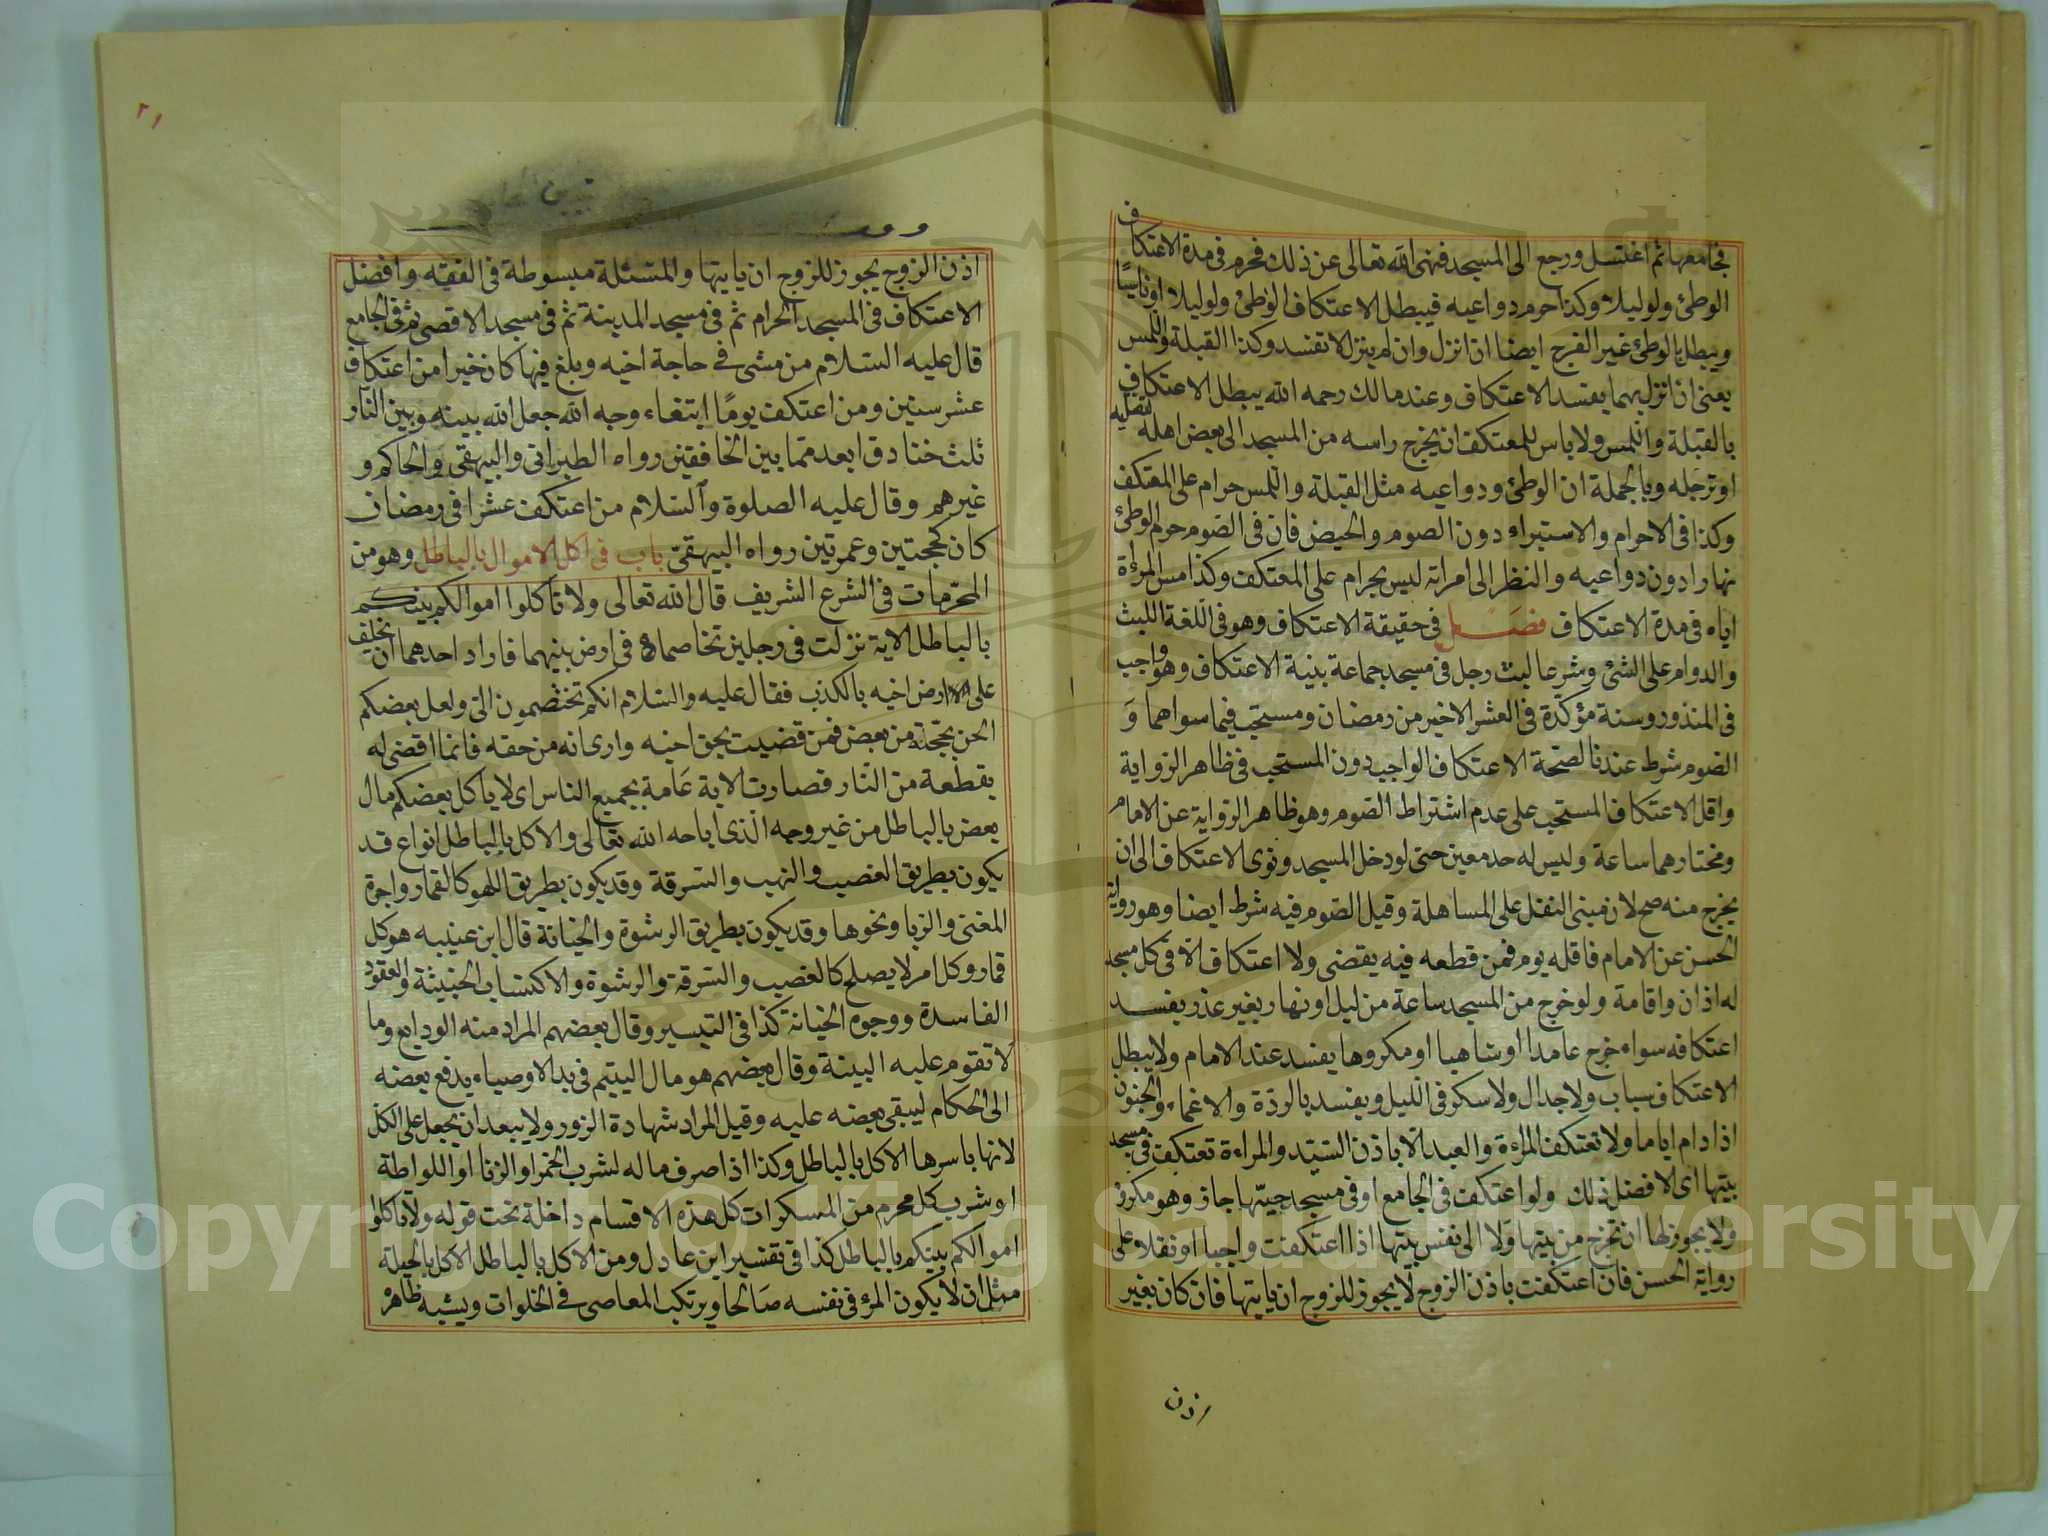 فجامعها ثم اغتسل ورجع الى المسجد فنهى الله تعالى عن ذلك فحرم فى مدة الاعتكاف
الوطئ ولو ليلا وكذا حرم دواعيه فيبطل الاعتكاف الوطئ ولو ليلا او ناسيًا
ويبطل بالوطئ غير الفرج ايضا ان انزل وان لم ينزل لا تفسد وكذا القبلة واللمس
يعنى ان انزل بهما يفسد الاعتكاف وعند مالك رحمه الله يبطل الاعتكاف
بالقبلة واللمس ولا باس للمعتكف ان يخرج راسه من المسجد الى بعض اهله
او ترجله وبالجملة ان الوطئ ودواعيه مثل القبلة واللمس حرام على المعتكف
وكذا فى الاحرام والاستبراء دون الصوم والحيض فان فى الصوم حرم الوطئ
نهارا دون دواعيه والنظر الى امراته ليس بحرام على المعتكف وكذا مس المرءة
اياه فى مدة الاعتكاف فصل فى حقيقة الاعتكاف وهو فى اللغة اللبث
والدوام على الشئ وشرعا لبث رجل فى مسجد جماعة بنية الاعتكاف وهو واجب
فى المنذور وسنة مؤكدة فى العشر الاخير من رمضان ومستحب فيما سواهما و
الصوم شرط عندنا لصحة الاعتكاف الواجب دون المستحب فى ظاهر الرواية
واقل الاعتكاف المستحب على عدم اشتراط الصوم وهو ظاهر الرواية عن الامام
ومختارهما ساعة وليس له حد معين حتى لو دخل المسجد ونوى الاعتكاف الى ان
يخرج منه صح لان مبنى النفل على المساهلة وقيل الصوم فيه شرط ايضا وهو رواية
الحسن عن الامام فاقله يوم فمن قطعه فيه يقضى ولا اعتكاف الا فى كل مسجد
له اذان واقامة ولو خرج من المسجد ساعة من ليل او نهار بغير عذر يفسد
اعتكافه سواء خرج عامدا او ساهيا او مكروها يفسد عند الامام ولا يبطل
الاعتكاف سباب ولا جدال ولا سكر فى الليل ويفسد بالردة والاغماء والجنون
اذا دام اياما ولا تعتكف المراءة والعبد الا باذن السيد والمراءة تعتكف فى مسجد
بيتها اى الافضل ذلك ولو اعتكفت فى الجامع او فى مسجد حيها جاز وهو مكروه
ولا يجوز لها ان تخرج من بيتها ولا الى نفس بيتها اذا اعتكفت واجبا او نفلا على
رواية الحسن فان اعتكفت باذن الزوج لا يجوز للزوج ان ياتيها فان كان بغير
اذن
٢١
اذن الزوج يجوز للزوج ان ياتيها والمسئلة مبسوطة فى الفقه وافضل
الاعتكاف فى المسجد الحرام ثم فى مسجد المدينة ثم فى مسجد الاقصى ثم فى الجامع
قال عليه السلام من مشى فى حاجة اخيه وبلغ فيها كان خيرا من اعتكاف
عشر سنين ومن اعتكف يومًا ابتغاء وجه الله جعل الله بينه وبين النار
ثلث خنادق ابعد مما بين الخافقين رواه الطبرانى والبيهقى والحاكم و
غيرهم وقال عليه الصلوة والسلام من اعتكف عشرا فى رمضان
كان كحجتين وعمرتين رواه البيهقى باب فى اكل الاموال بالباطل وهو من
المحرمات فى الشرع الشريف قال الله تعالى ولا تاكلوا اموالكم بينكم
بالباطل الاية نزلت فى رجلين تخاصما فى ارض بينهما فاراد احدهما ان يحلف
على ارض اخيه بالكذب فقال عليه والسلام انكم تختصمون الىّ ولعل بعضكم
الحن بحجته من بعض فمن قضيت بحق اخيه وارى انه من حقه فانما اقضى له
بقطعة من النار فصارت الاية عامة بجميع الناس اى لا ياكل بعضكم مال
بعض بالباطل من غير وجه الذى اباحه الله تعالى والاكل بالباطل انواع قد
يكون بطريق الغصب والنهب والسرقة وقد يكون بطريق اللهو كالقمار واجرة
المغنى والزبا ونحوها وقد يكون بطريق الرشوة والخيانة قال ابن عيينه هو كل
قمار وكل امر لا يصلح كالغصب والسرقة والرشوة والاكتساب الخبيثة والعقود
الفاسدة ووجوه الخيانة كذا فى التيسير وقال بعضهم المراد منه الودايع وما
لا تقوم عليه البينة وقال بعضهم هو مال اليتيم فى يد الاوصياء يدفع بعضه
الى الحكام ليبقى بعضه عليه وقيل المراد شهادة الزور ولا يبعد ان يجعل على الكل
لانها باسرها الاكل بالباطل وكذا اذا صرف ماله لشرب الخمر او الزنا او اللواطة
او شرب كل محرم من المسكرات كل هذه الاقسام داخلة تحت قوله ولا تاكلوا
اموالكم بينكم بالباطل كذا فى تفسير ابن عادل ومن الاكل بالباطل الاكل بالحيلة
مثل ان لا يكون المرء فى نفسه صالحا ويرتكب المعاصى فى الخلوات ويشبه ظاهره
Copyright © King Saud University